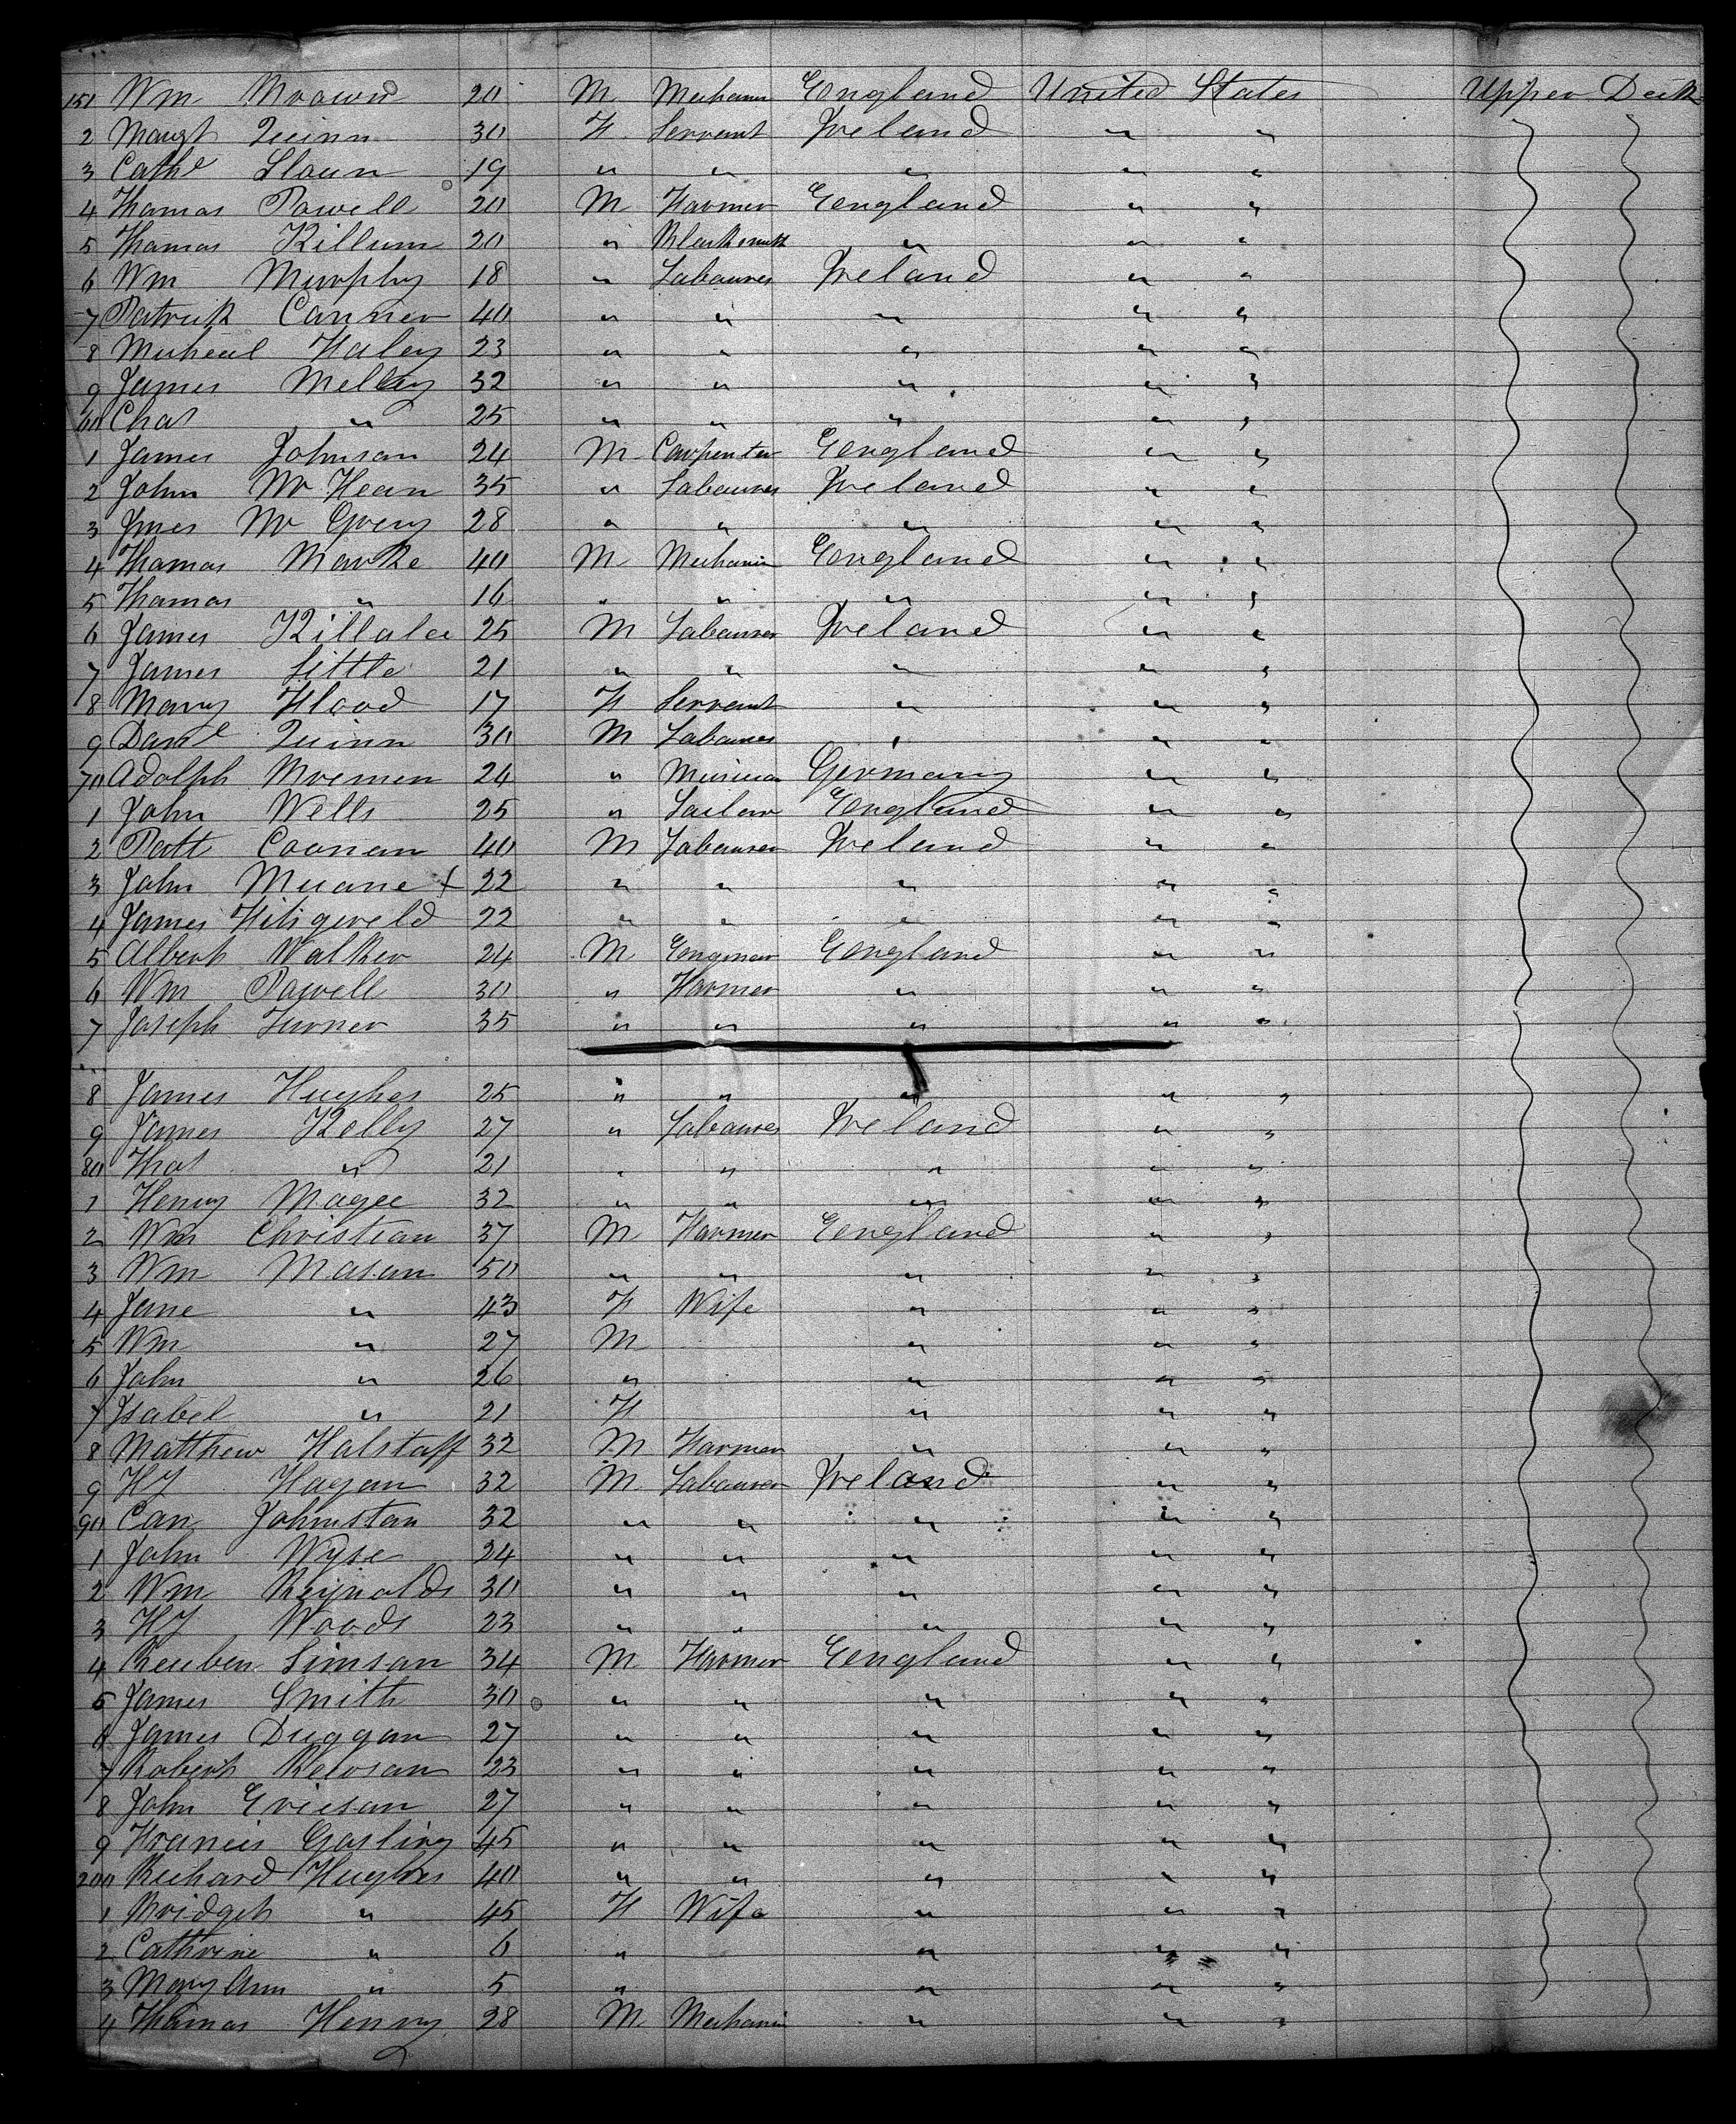 151 Wm Brown 20 M Mechanic England United States Upper Deck
2 Margt Quinn 30 F Servant Ireland " "
3 Cathe Sloan 19 " " " " "
4 Thomas Powell 20 M Farmer England " "
5 Thomas Killum 20 " Blacksmith " " "
6 Wm Murphy 18 " Labourer Ireland " "
7 Patrick Conner 40 " " " " "
8 Micheal Haley 23 " " " " "
9 James Melley 32 " " " " "
60 Chas " 25 " " " " "
1 James Johnson 24 M Carpenter England " "
2 John Mc Kean 35 " Labourer Ireland " "
3 Jmes Mc Gvery 28 " " " " "
4 Thomas Marke 40 M Mechanic England " "
5 Thomas " 16 " " " " "
6 James Killalee 25 M Labourer Ireland " "
7 James Little 21 " " " " "
8 Mary Flood 17 F Servant " " "
9 Danl Quinn 30 M Labourer " " "
70 Adolph Bremen 24 " Musician Germany " "
1 John Wells 25 " Sailor England " "
2 Patt Coonan 40 M Labourer Ireland " "
3 John Muane x 22 " " " " "
4 James Fitsgereld 22 " " " " "
5 Albert Walker 24 M Enginear England " "
6 Wm Powell 30 " Farmer " " "
7 Joseph Turner 35 " " " " "
8 James Hughes 25 " " " " "
9 James Kelly 27 " Labourer Ireland " "
80 Thos " 21 " " " " "
1 Henry Magee 32 " " " " "
2 Wm Christian 37 M Farmer England " "
3 Wm Mason 50 " " " " "
4 Jane " 43 F Wife " " "
5 Wm " 27 M " " "
6 John " 26 " " " "
7 Isabel " 21 F " " "
8 Matthew Halstaff 32 M Farmer " " "
9 Hy Hagan 32 M Labourer Ireland " "
90 Con Johnston 32 " " " " "
1 John Wyse 24 " " " " "
2 Wm Reynolds 30 " " " " "
3 Hy Woods 23 " " " " "
4 Reuben Simson 34 M Farmer England " "
5 James Smith 30 " " " " "
6 James Duggan 27 " " " " "
7 Robert Kelosan 23 " " " " "
8 John Ericson 27 " " " " "
9 Francis Gosling 45 " " " " "
200 Richard Hughes 40 " " " " "
1 Bridget " 45 F Wife " " "
2 Cathrine " 6 " " " "
3 Mary Ann " 5 " " " "
4 Thomas Henry 28 M Mechanic " " "